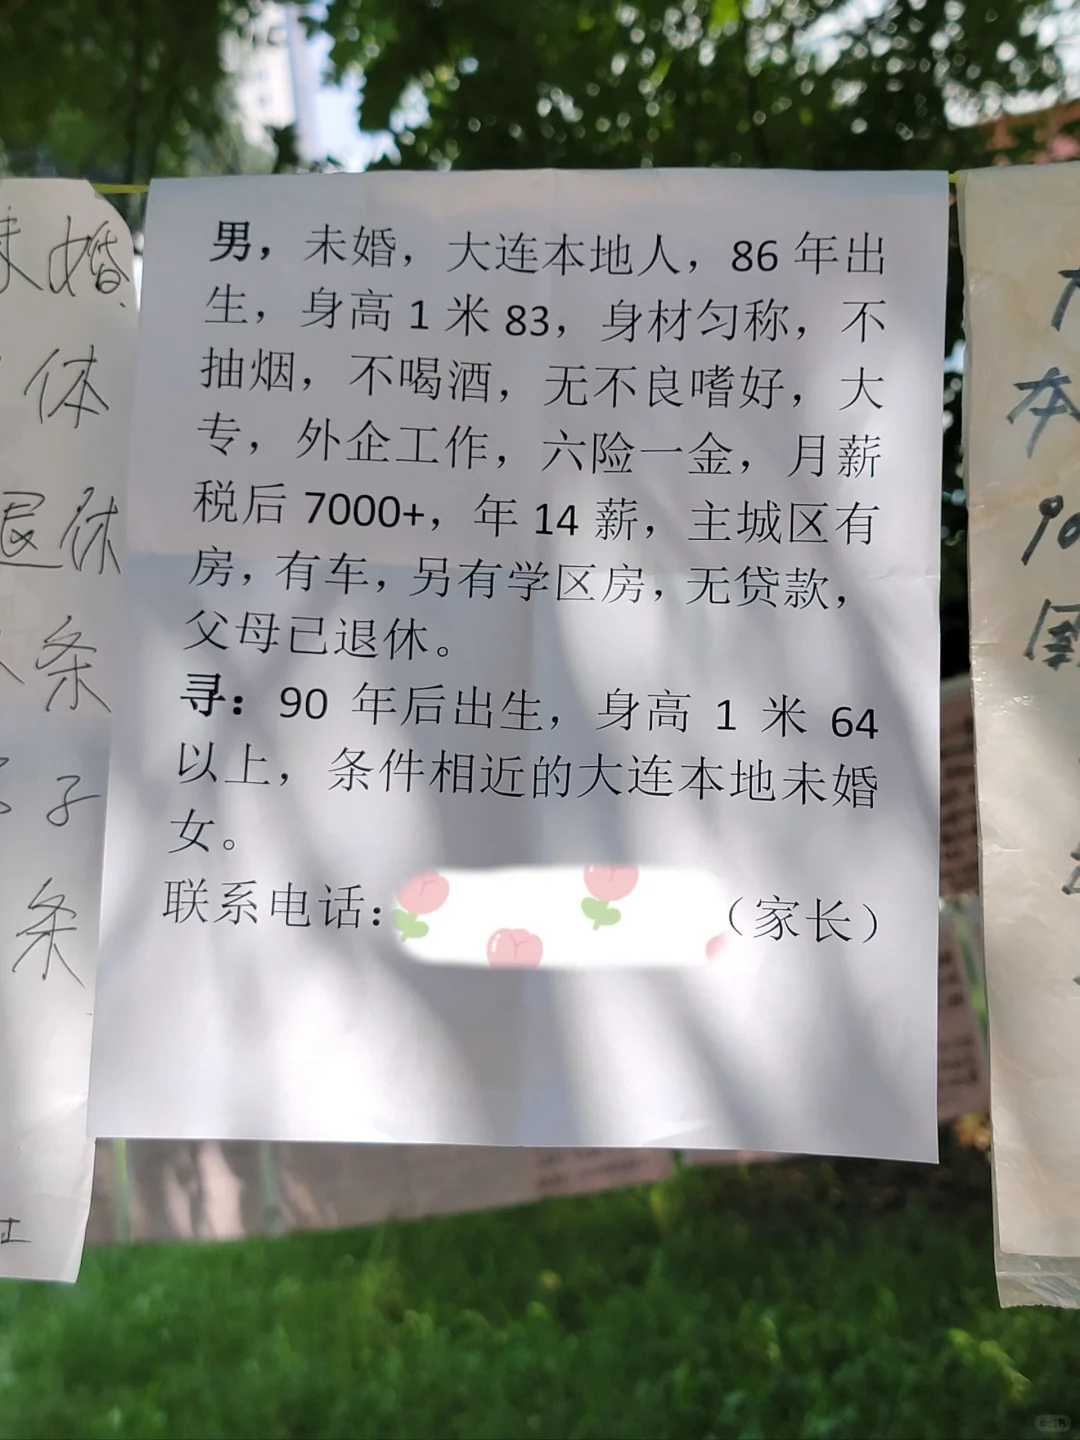 男，未婚，大连本地人，86 年出
生，身高 1 米 83，身材匀称，不
抽烟，不喝酒，无不良嗜好，大
专，外企工作，六险一金，月薪
税后 7000+，年 14 薪，主城区有
房，有车，另有学区房，无贷款，
父母已退休。
寻：90 年后出生，身高 1 米 64
以上，条件相近的大连本地未婚
女。
联系电话：（家长）
未婚
体
退休
条
子
条
本
90
小红书